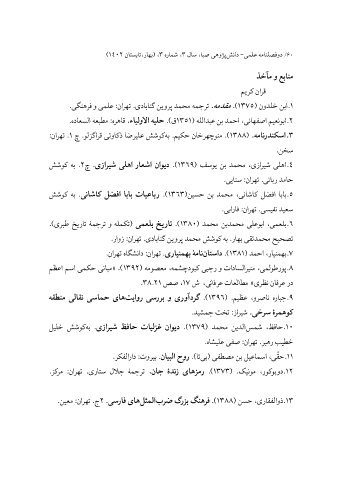 ۶۰/ دوفصلنامه علمی- دانش‌پژوهی صبا، سال ۳، شماره ۳، (بهار، تابستان ۱۴۰۲)
منابع و مآخذ
قران کریم
۱.ابن خلدون (۱۳۷۵). مقدمه. ترجمه محمد پروین گنابادی. تهران: علمی و فرهنگی.
۲.ابونعیم اصفهانی، احمد بن عبدالله (۱۳۵۱ق). حلیه الاولیاء. قاهره: مطبعه السعاده.
۳.اسکندرنامه. (۱۳۸۸). منوچهرخان حکیم. به‌کوشش علیرضا ذکاوتی قراگزلو. چ ۱. تهران:
سخن.
۴.اهلی شیرازی، محمد بن یوسف (۱۳۶۹). دیوان اشعار اهلی شیرازی. چ۲. به کوشش
حامد ربانی. تهران: سنایی.
۵.بابا افضل کاشانی، محمد بن حسین(۱۳۶۳). رباعیات بابا افضل کاشانی. به کوشش
سعید نفیسی. تهران: فارابی.
۶.بلعمی، ابوعلی محمدبن محمد (۱۳۸۰). تاریخ بلعمی (تکمله و ترجمهٔ تاریخ طبری).
تصحیح محمدتقی بهار. به کوشش محمد پروین گنابادی. تهران: زوار.
۷.بهمنیار، احمد (۱۳۸۱). داستان‌نامهٔ بهمنیاری. تهران: دانشگاه تهران.
۸.پورطولمی، منیرالسادات و رجبی کبودچشمه، معصومه (۱۳۹۲). «مبانی حکمی اسم اعظم
در عرفان نظری» مطالعات عرفانی، ش ۱۷، صص ۲۱.۳۸.
۹.جباره ناصرو، عظیم. (۱۳۹۶). گردآوری و بررسی روایت‌های حماسی نقالی منطقه
کوهمرهٔ سرخی، شیراز: تخت جمشید.
۱۰.حافظ، شمس‌الدین محمد (۱۳۷۹). دیوان غزلیات حافظ شیرازی. به‌کوشش خلیل
خطیب رهبر. تهران: صفی علیشاه.
۱۱.حقّی، اسماعیل بن مصطفی (بی‌تا). روح البیان. بیروت: دارالفکر.
۱۲.دوبوکور، مونیک. (۱۳۷۳). رمزهای زندهٔ جان. ترجمهٔ جلال ستاری. تهران: مرکز.
۱۳.ذوالفقاری، حسن (۱۳۸۸). فرهنگ بزرگ ضرب‌المثل‌های فارسی. ۲ج. تهران: معین.